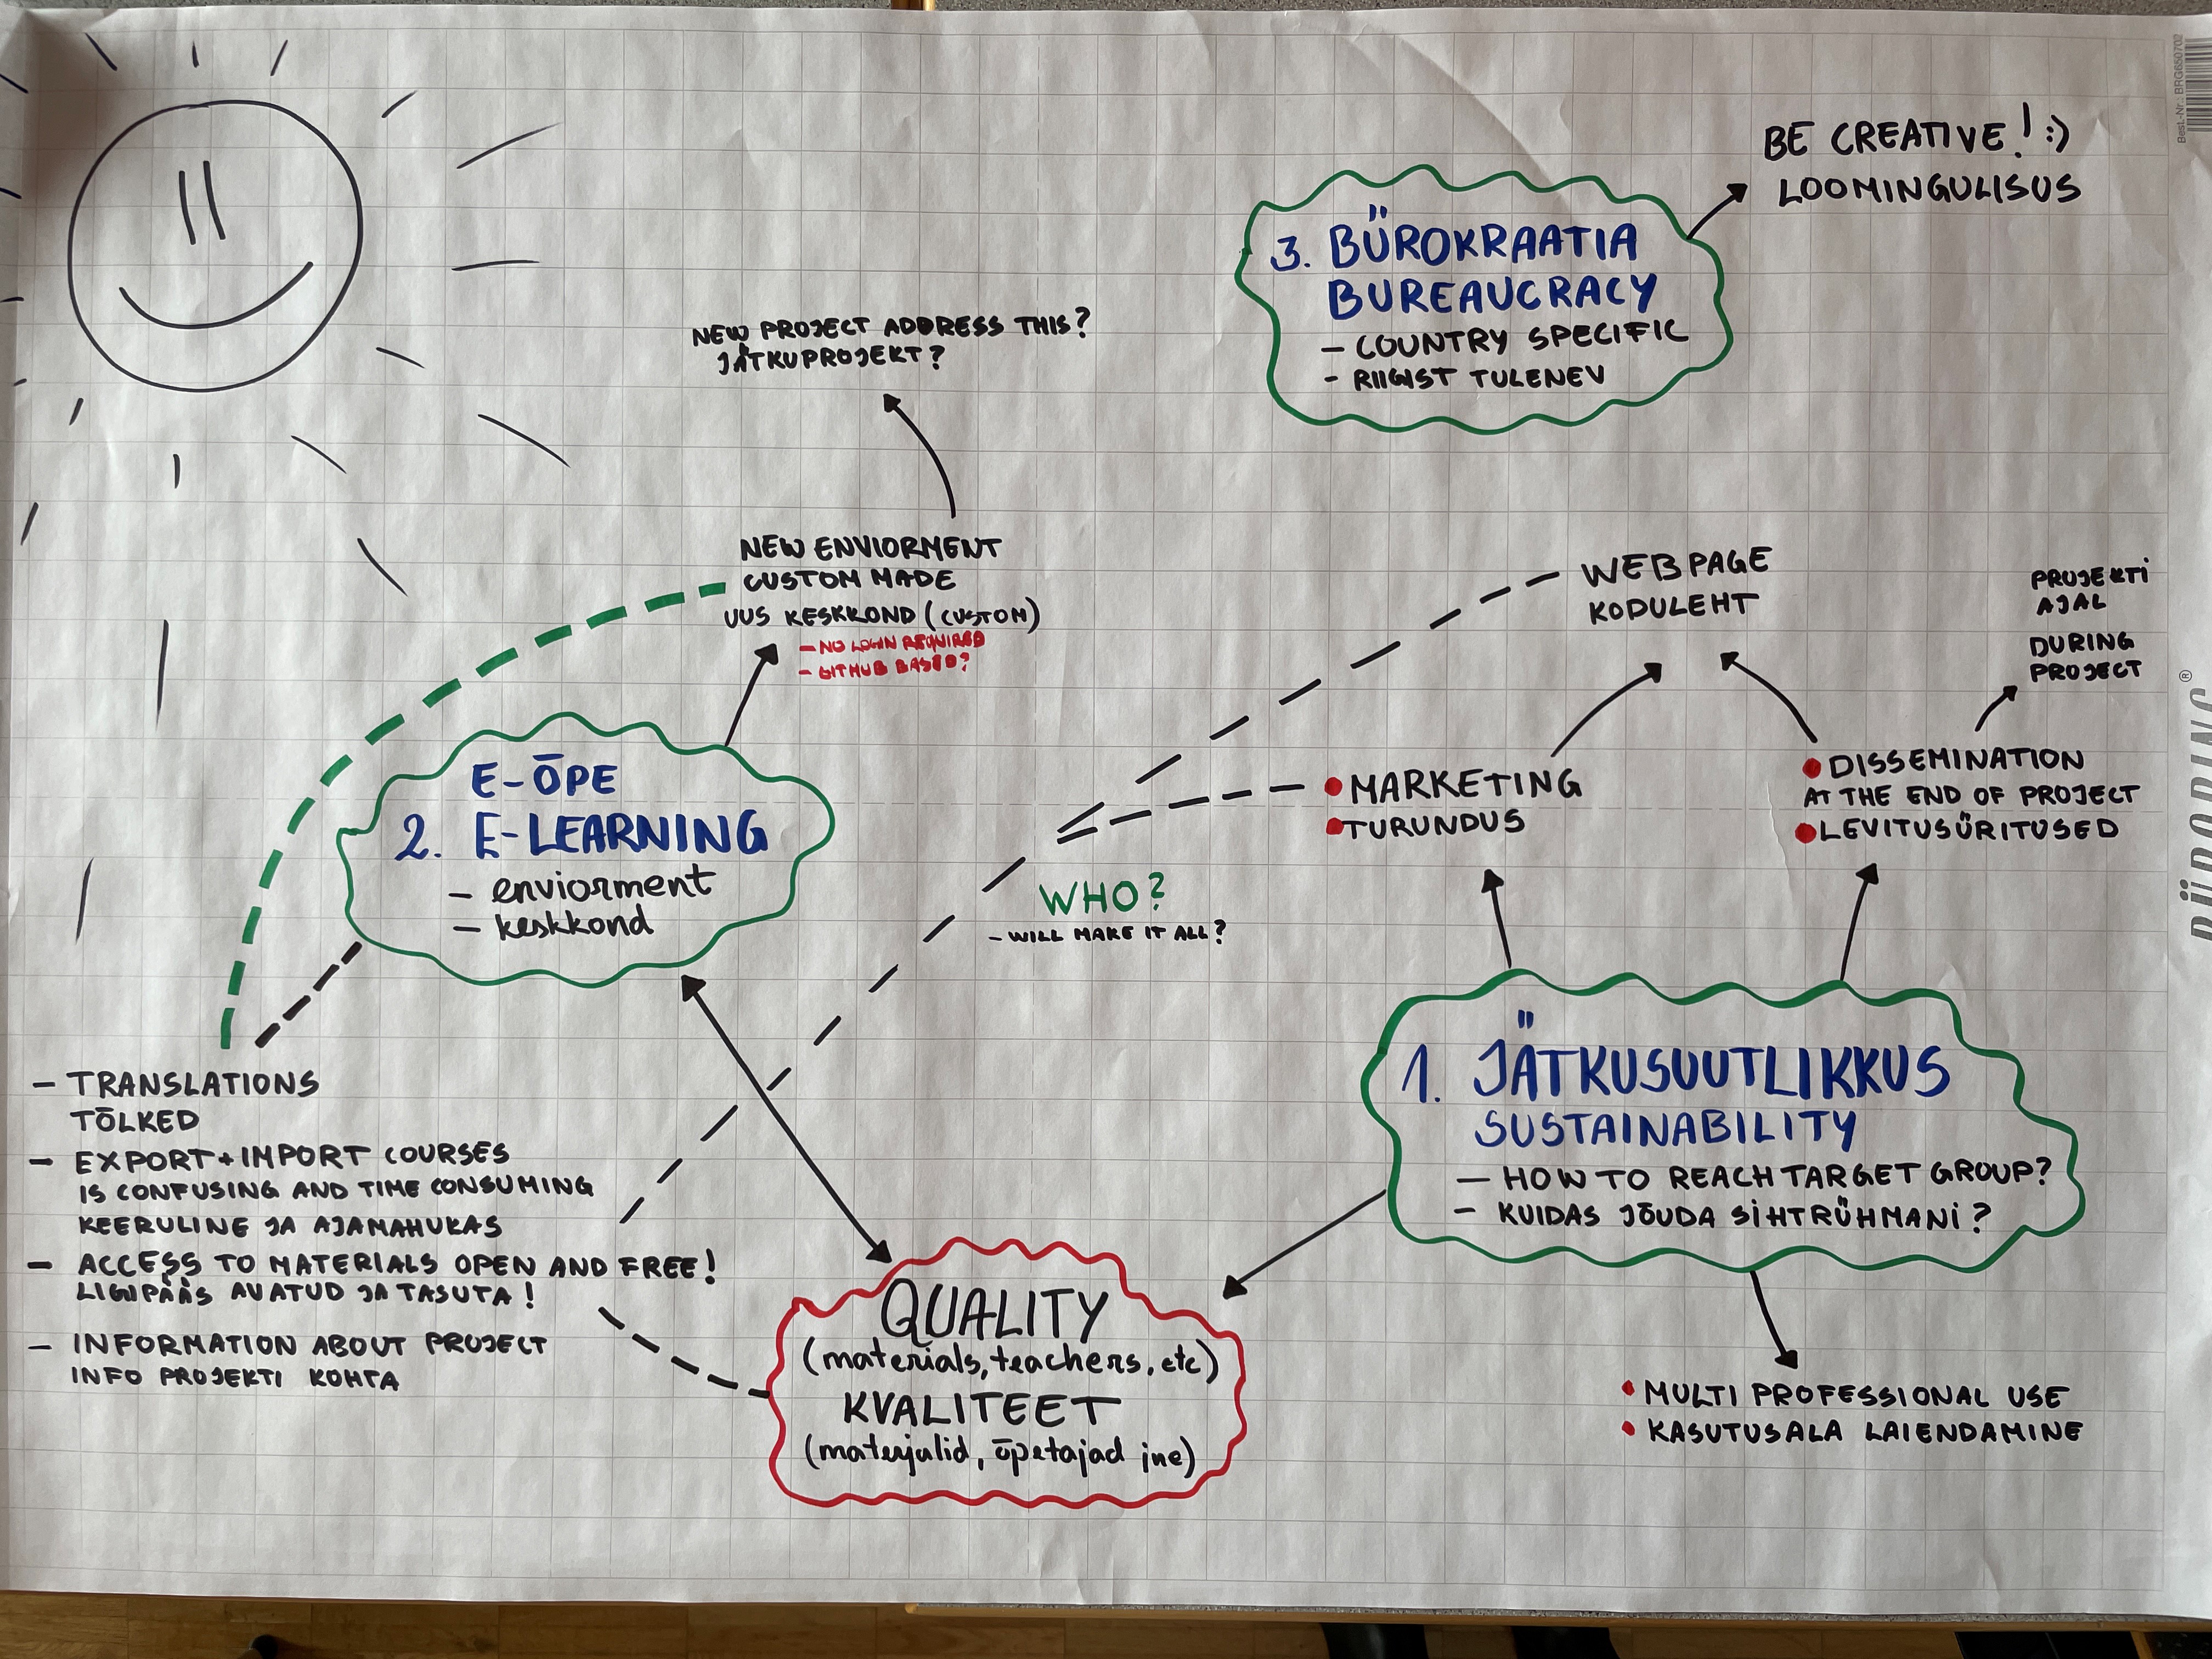 BE CREATIVE! :)
LOOMINGULISUS
3. BÜROKRAATIA
BUREAUCRACY
- COUNTRY SPECIFIC
- RIIGIST TULENEV
NEW PROJECT ADDRESS THIS?
JÄTKUPROJEKT?
NEW ENVIORMENT
CUSTOM MADE
UUS KESKKOND (CUSTOM)
- NO LOGIN REQUIRED
- GITHUB BASED?
WEBPAGE
KODULEHT
PROJEKTI
AJAL
DURING
PROJECT
E-ÕPE
2. E-LEARNING
- enviorment
- keskkond
• MARKETING
• TURUNDUS
• DISSEMINATION
AT THE END OF PROJECT
• LEVITUSÜRITUSED
WHO?
- WILL MAKE IT ALL?
1. JÄTKUSUUTLIKKUS
SUSTAINABILITY
- HOW TO REACH TARGET GROUP?
- KUIDAS JÕUDA SIHTRÜHMANI?
- TRANSLATIONS
TÕLKED
- EXPORT+IMPORT COURSES
IS CONFUSING AND TIME CONSUMING
KEERULINE JA AJAMAHUKAS
- ACCESS TO MATERIALS OPEN AND FREE!
LIGIPÄÄS AVATUD JA TASUTA!
- INFORMATION ABOUT PROJECT
INFO PROJEKTI KOHTA
QUALITY
(materials, teachers, etc)
KVALITEET
(materjalid, õpetajad jne)
• MULTI PROFESSIONAL USE
• KASUTUSALA LAIENDAMINE
Best.-Nr.: BRG650702